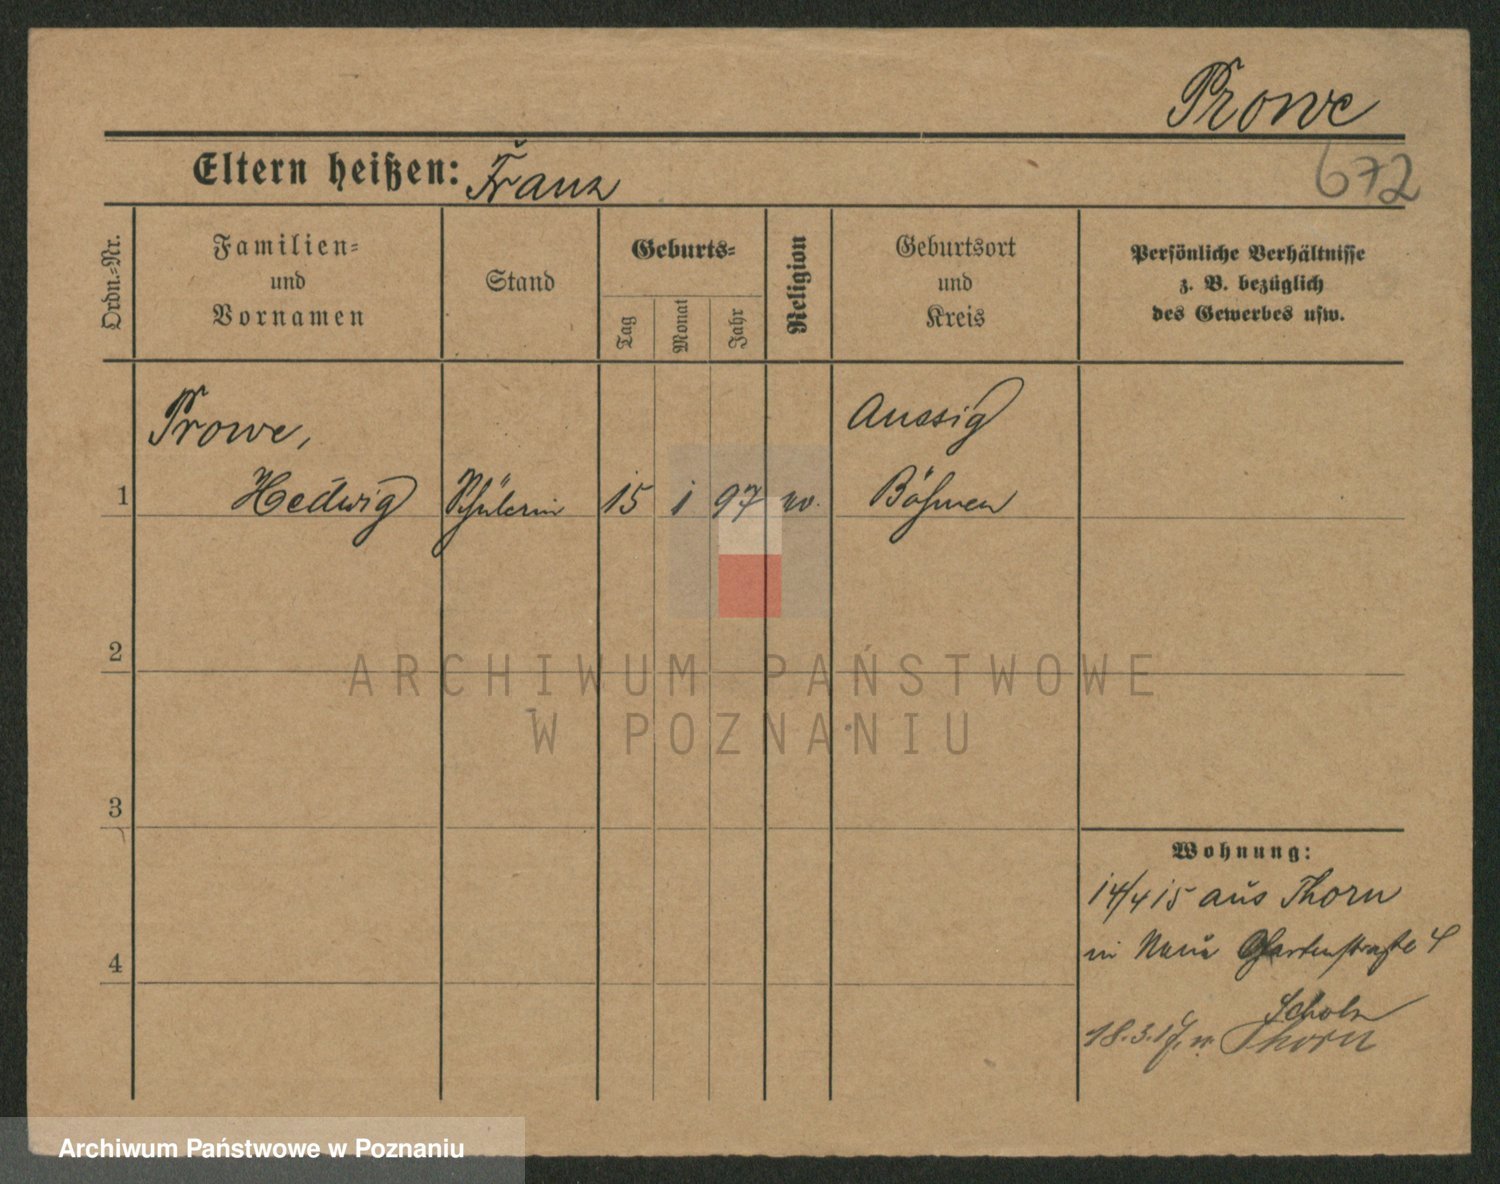 Prowe
Eltern heißen: Franz
672
Ordn.-Nr.
Familien-
und
Vornamen
Stand
Geburts-
Tag
Monat
Jahr
Religion
Geburtsort
und
Kreis
Persönliche Verhältnisse
z. B. bezüglich
des Gewerbes usw.
Prowe,
Aussig
1
Hedwig
Schülerin
15
1
97
Böhmen
2
ARCHIWUM PAŃSTWOWE
W POZNANIU
3
Wohnung:
14/4 15 aus Thorn
in Gartenstraße 4
Scholz
18.3.17. n. Thorn
4
Archiwum Państwowe w Poznaniu